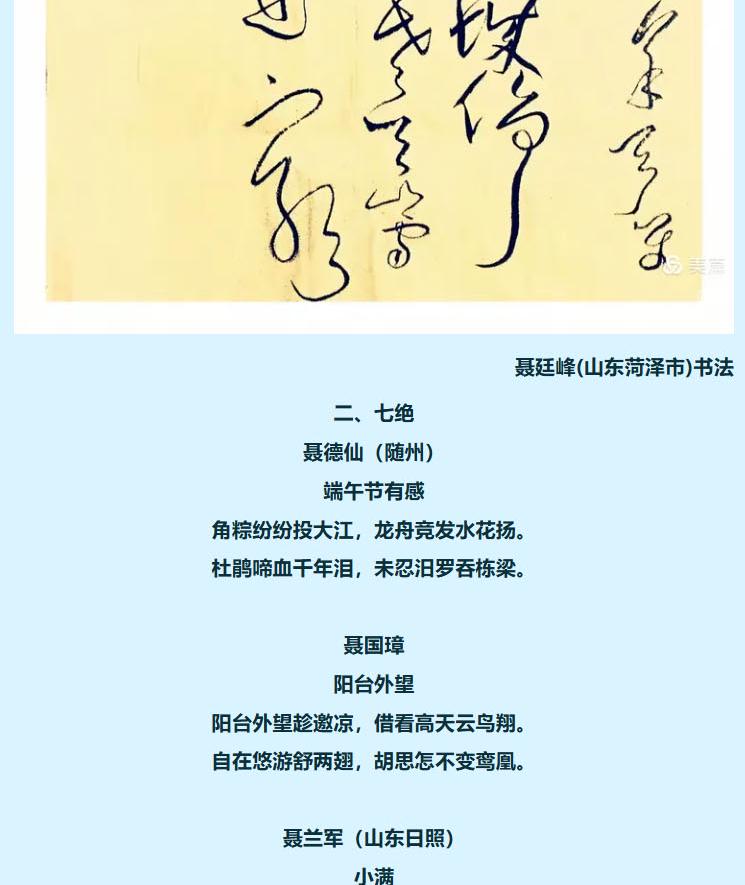 美篇
聂廷峰(山东菏泽市)书法
二、七绝
聂德仙（随州）
端午节有感
角粽纷纷投大江，龙舟竞发水花扬。
杜鹃啼血千年泪，未忍汨罗吞栋梁。
聂国璋
阳台外望
阳台外望趁邀凉，借看高天云鸟翔。
自在悠游舒两翅，胡思怎不变鸾凰。
聂兰军（山东日照）
小满